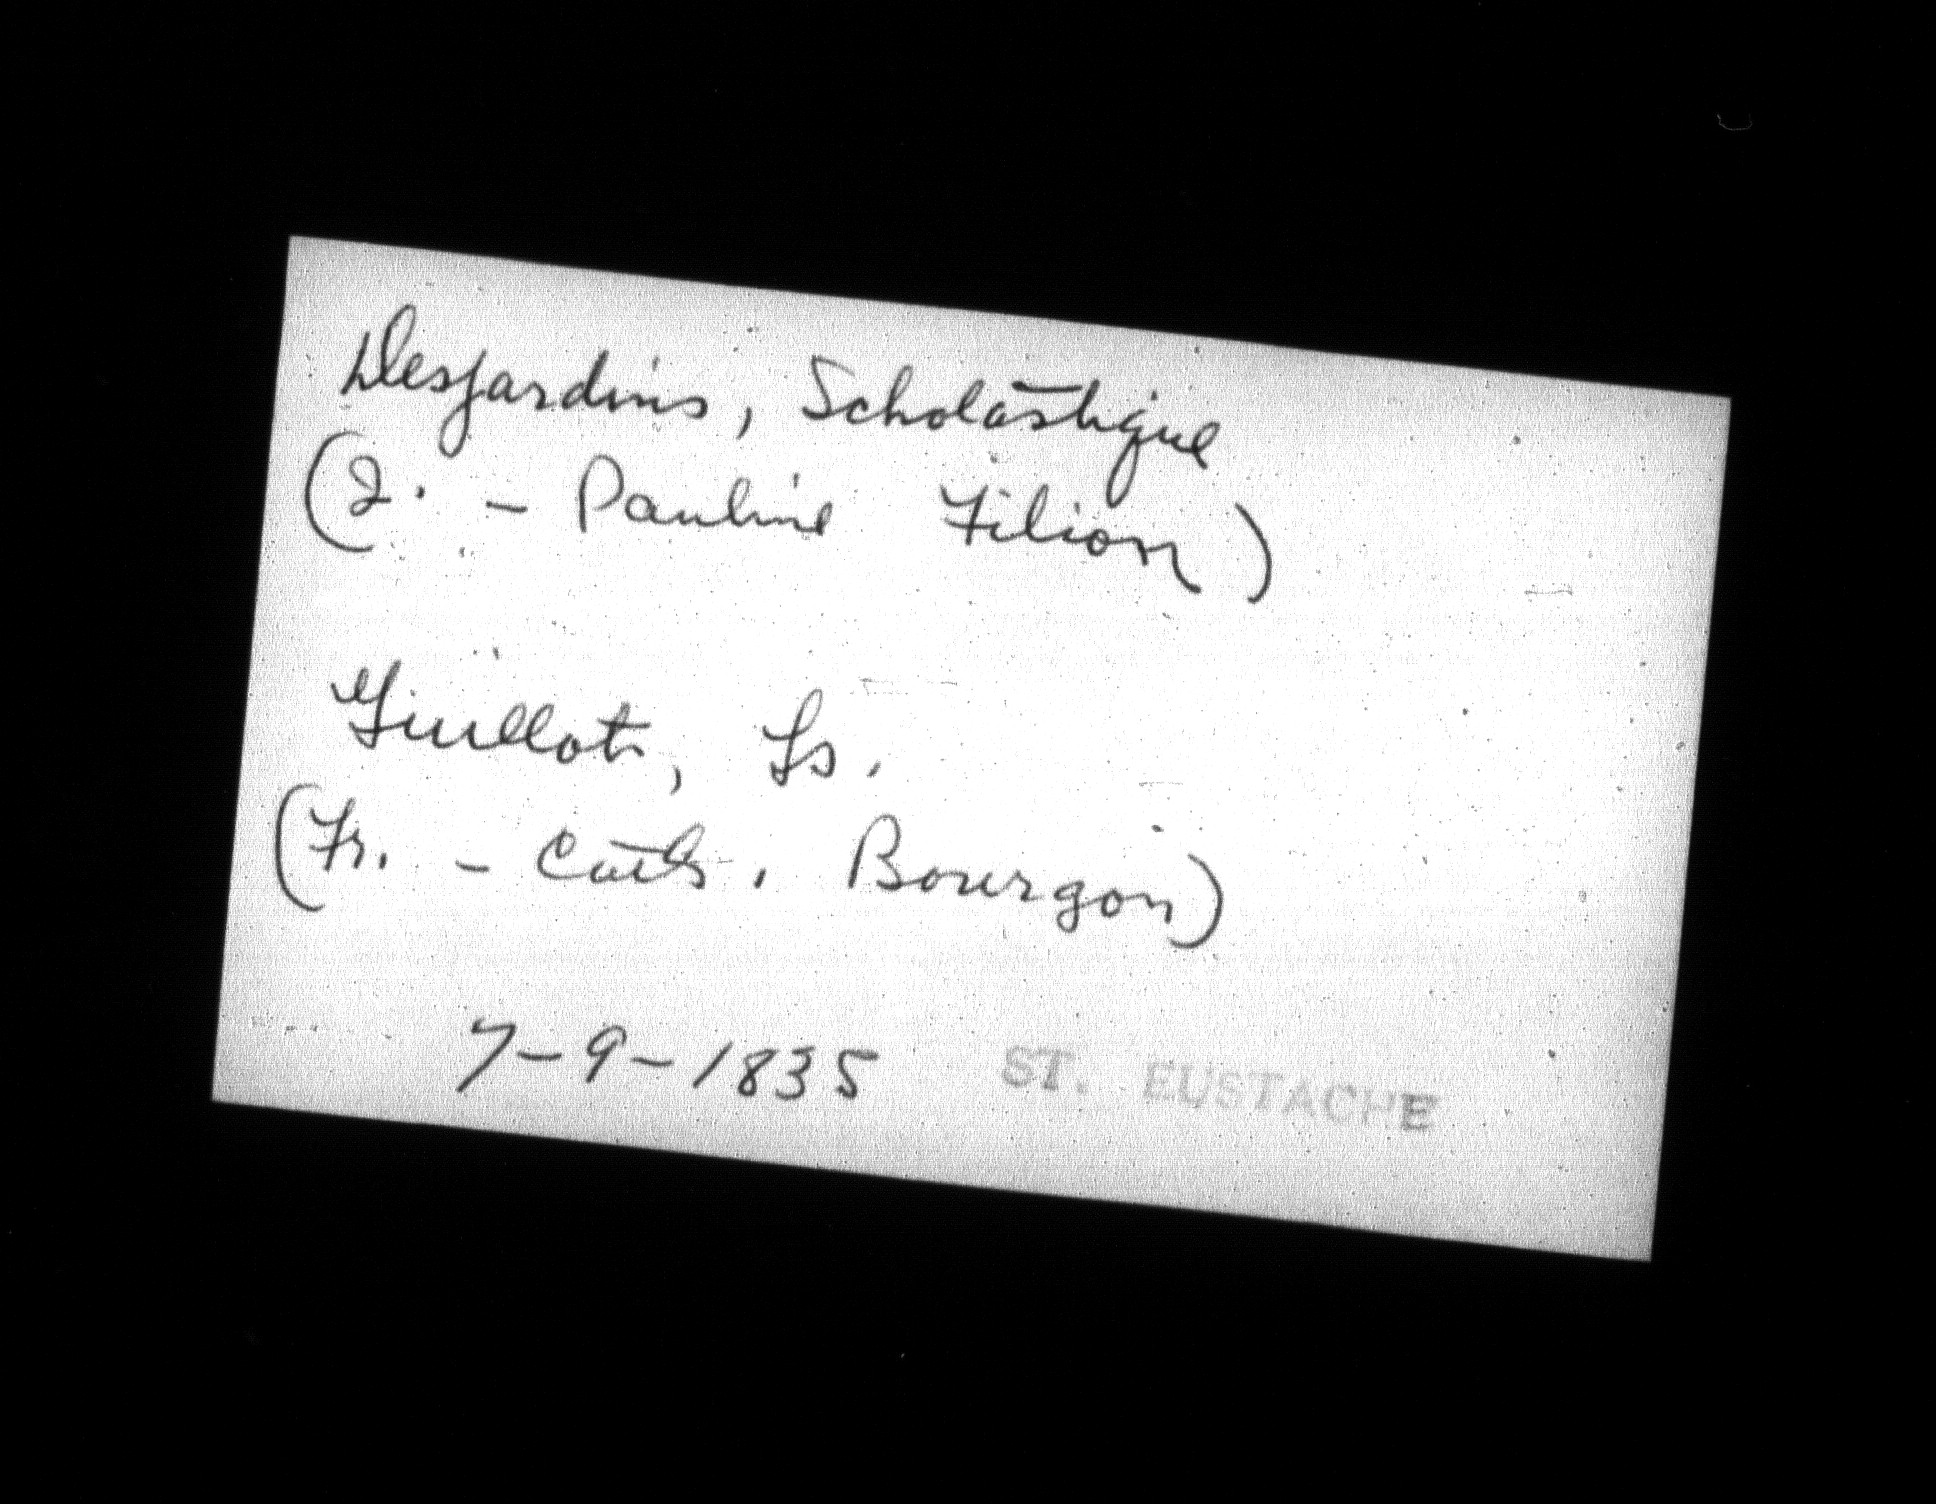 Desjardins, Scholastique
(J. - Pauline Filion)
Guillot, Ls.
(Fr. - Cath. Bourgon)
7-9-1835 ST. EUSTACHE